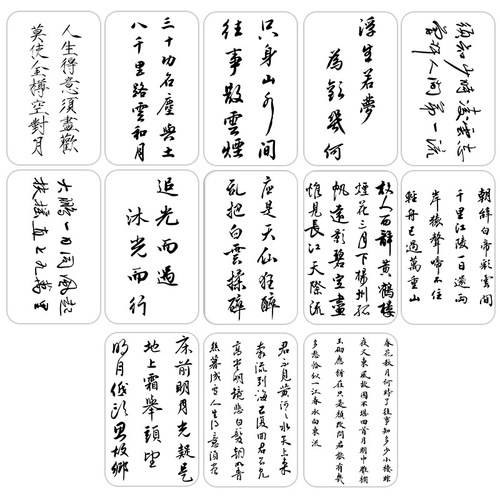 人生得意須盡歡
莫使金樽空對月
三十功名塵與土
八千里路雲和月
只身山水間
往事散雲煙
浮生若夢
為歡幾何
須知少時凌雲志
曾許人間第一流
大鵬一日同風起
扶搖直上九萬里
追光而遇
沐光而行
應是天仙狂醉
亂把白雲揉碎
故人西辭黃鶴樓
煙花三月下楊州孤
帆遠影碧空盡
惟見長江天際流
朝辭白帝彩雲間
千里江陵一日還兩
岸猿聲啼不住
輕舟已過萬重山
床前明月光疑是
地上霜舉頭望
明月低頭思故鄉
君不見黃河之水天上來
奔流到海不復回君不見
高堂明鏡悲白髮朝如青
絲暮成雪人生得意須盡
春花秋月何時了往事知多少小樓昨
夜又東風故國不堪回首月明中雕欄
玉砌應猶在只是朱顏改問君能有幾
多愁恰似一江春水向東流